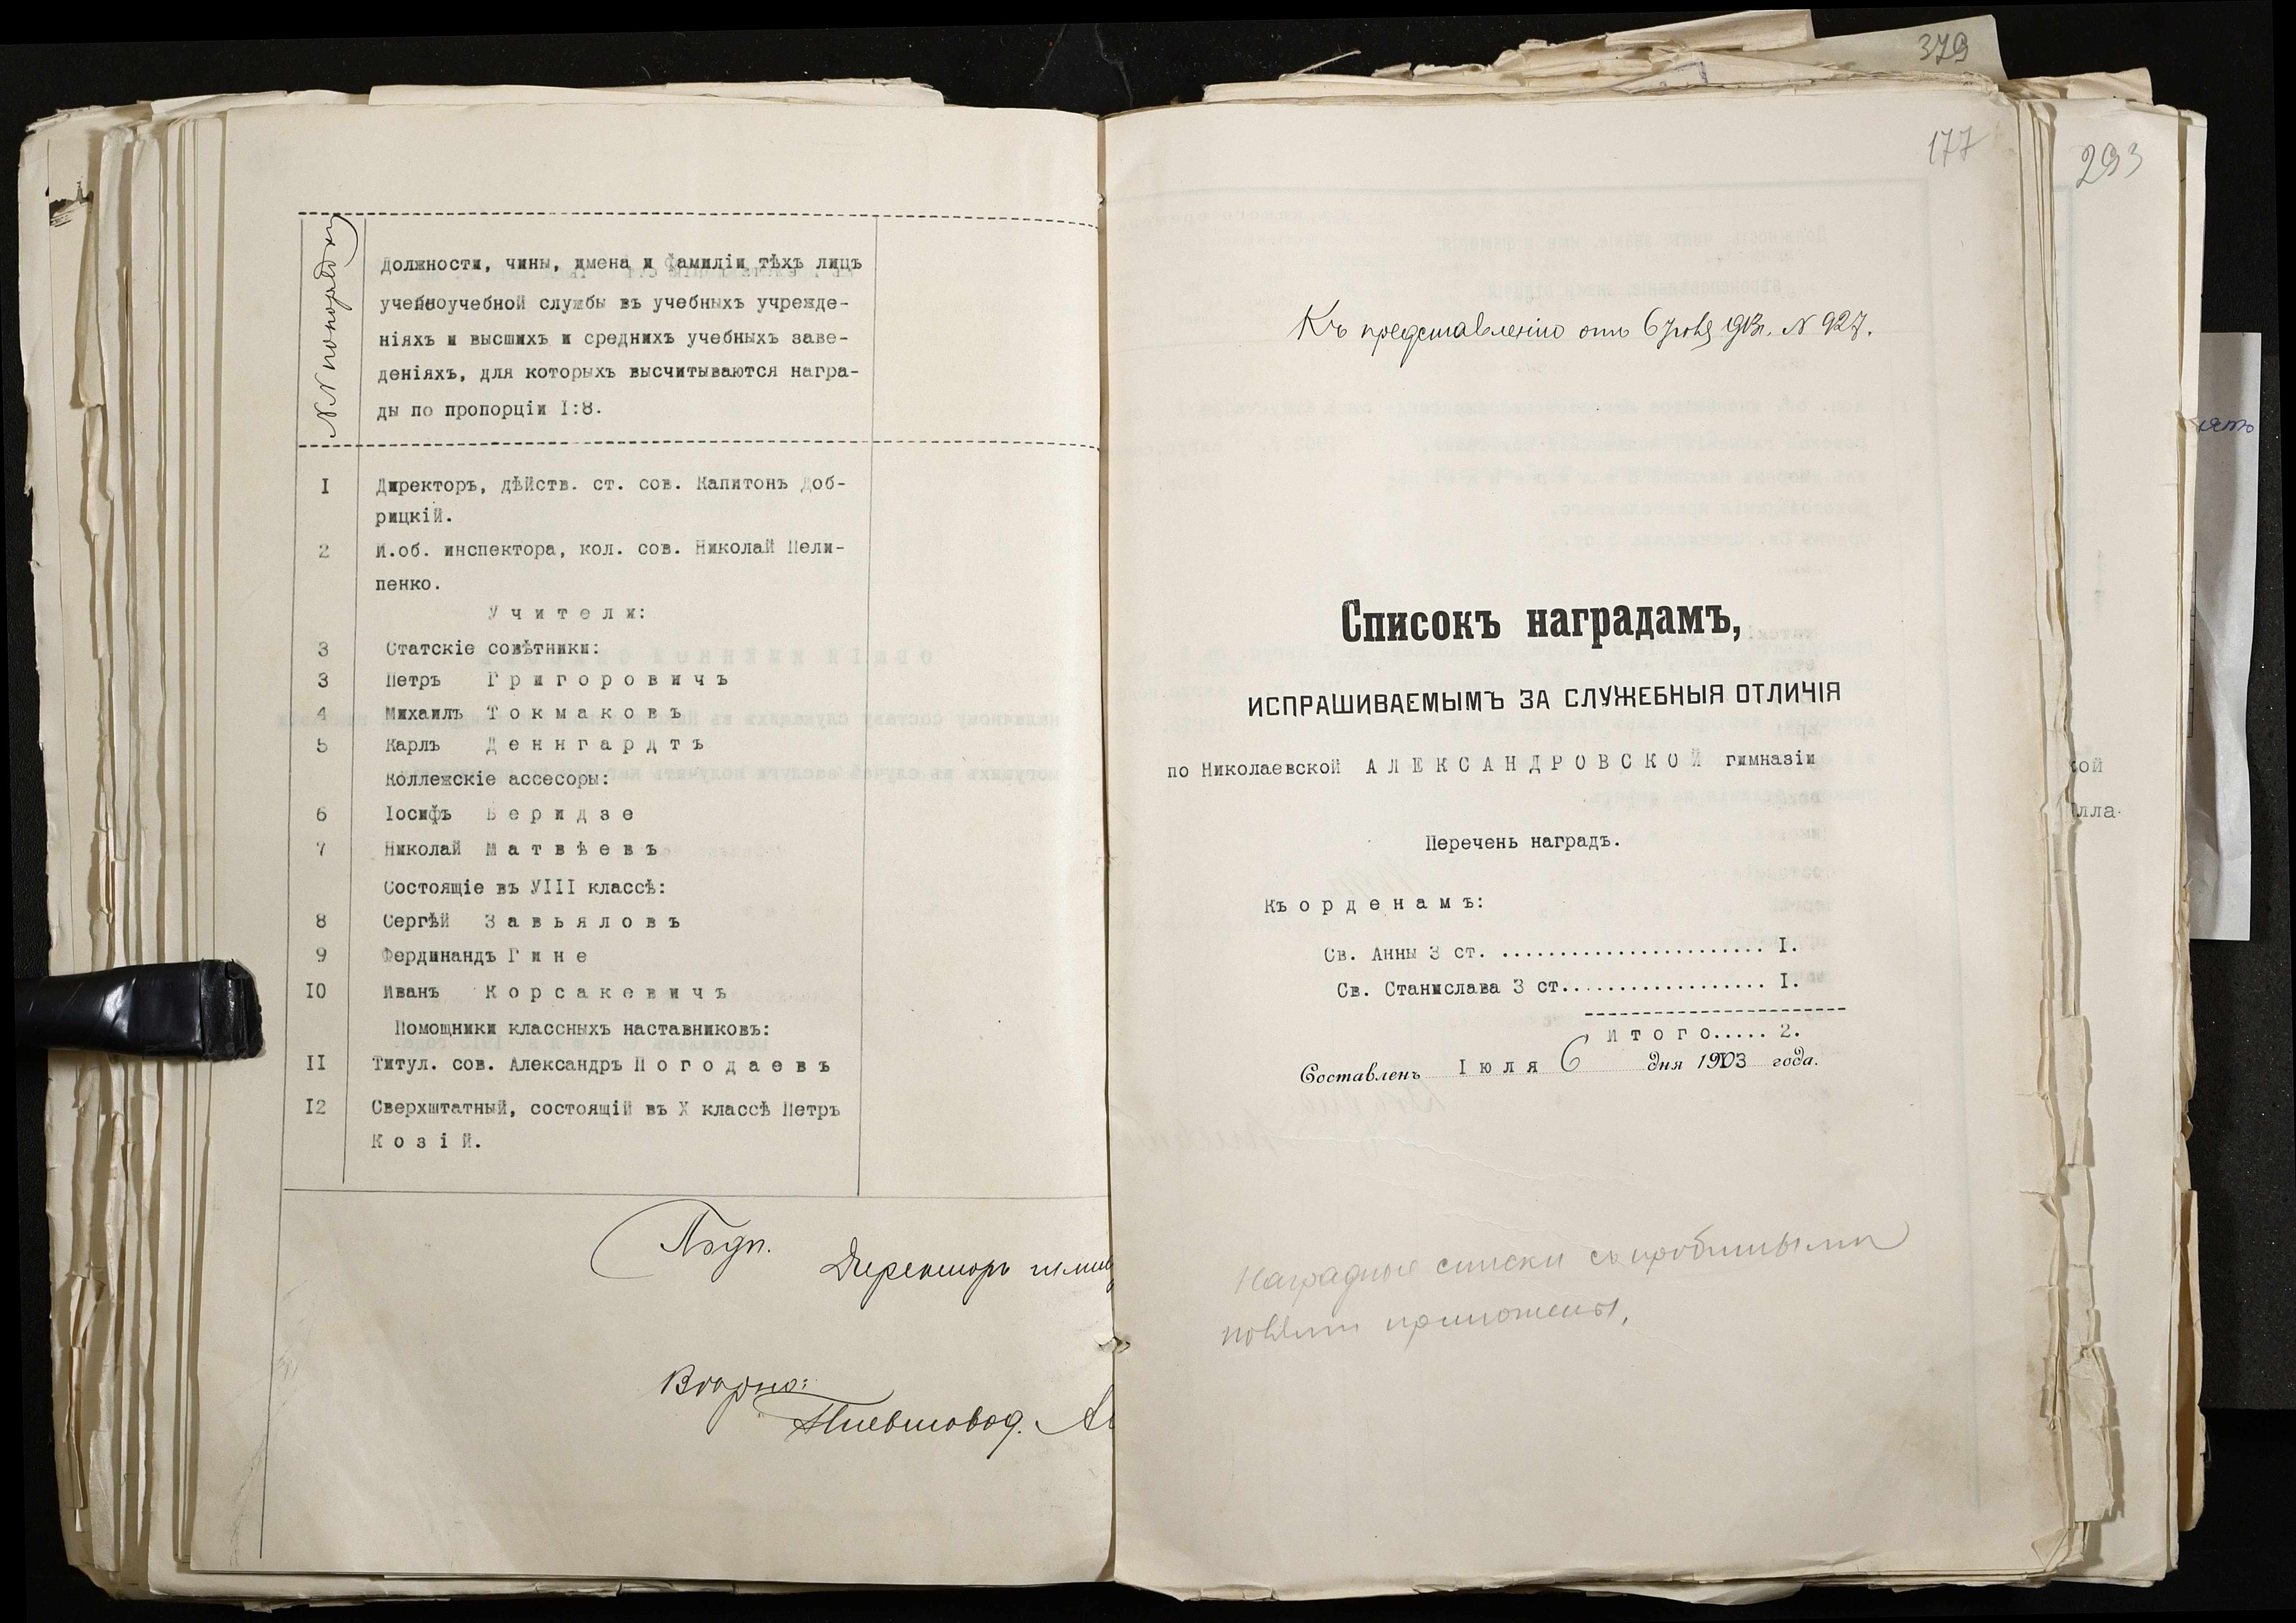 №№ по порядку
Должности, чины, имена и фамиліи тѣхъ лицъ
учебноучебной службы въ учебныхъ учрежде-
ніяхъ и высшихъ и среднихъ учебныхъ заве-
деніяхъ, для которыхъ высчитываются награ-
ды по пропорціи I:8.
I Директоръ, дѣйств. ст. сов. Капитонъ Доб-
рицкій.
2 И.об. инспектора, кол. сов. Николай Пели-
пенко.
Учители:
3 Статскіе совѣтники:
3 Петръ Григоровичъ
4 Михаилъ Токмаковъ
5 Карлъ Деннгардтъ
Коллежскіе ассесоры:
6 Іосифъ Беридзе
7 Николай Матвѣевъ
Состоящіе въ УІІІ классѣ:
8 Сергѣй Завьяловъ
9 Фердинандъ Гине
I0 Иванъ Корсакевичъ
Помощники классныхъ наставниковъ:
II Титул. сов. Александръ Погодаевъ
I2 Сверхштатный, состоящій въ X классѣ Петръ
Козій.
Подп.
Директоръ гимн
Вѣрно:
379
177
293
Къ представленію отъ 6 Іюля 1913г. № 927.
Списокъ наградамъ,
ИСПРАШИВАЕМЫМЪ ЗА СЛУЖЕБНЫЯ ОТЛИЧІЯ
по Николаевской АЛЕКСАНДРОВСКОЙ гимназіи
Перечень наградъ.
Къ орденамъ:
Св. Анны 3 ст. ....................... I.
Св. Станислава 3 ст.................. I.
Итого..... 2.
Составленъ Іюля 6 дня 1913 года.
Наградные списки съ пробитыми
полями приложены.
кой
лла-